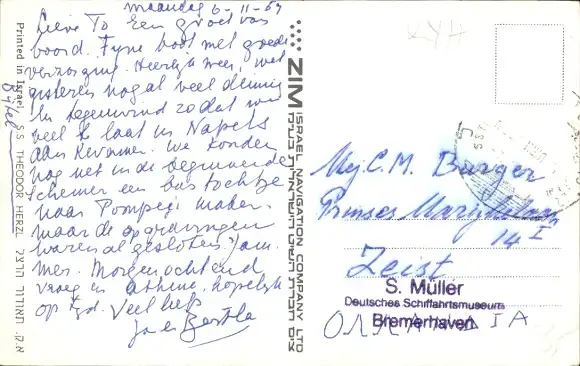 maandag 6-11-67
Lieve To Een groet van
boord. Fijne boot met goede
verzorging. Heerlijk weer, wel
gisteren nogal veel deining
en tegenwind zodat we
veel te laat in Napels
aan kwamen. We konden
nog net in de beginnende
schemer een bustochtje
naar Pompeji maken.
maar de opgravingen
waren al gesloten. Jam
mer. Morgenochtend
vroeg in Athene. hopelijk
op tijd. Veel liefs
Bertha
Printed in Israel. S.S. THEODOR HERZL תאודור הרצל א.ק.
Bijbel
ZIM ISRAEL NAVIGATION COMPANY LTD
צים חברת השיט הישראלית בע״מ
Mej. C.M. Burger
Prinses Marijkelaan
14 I
Zeist
S. Müller
Deutsches Schiffahrtsmuseum
Bremerhaven
ΟΛΛΑΝΔΙΑ